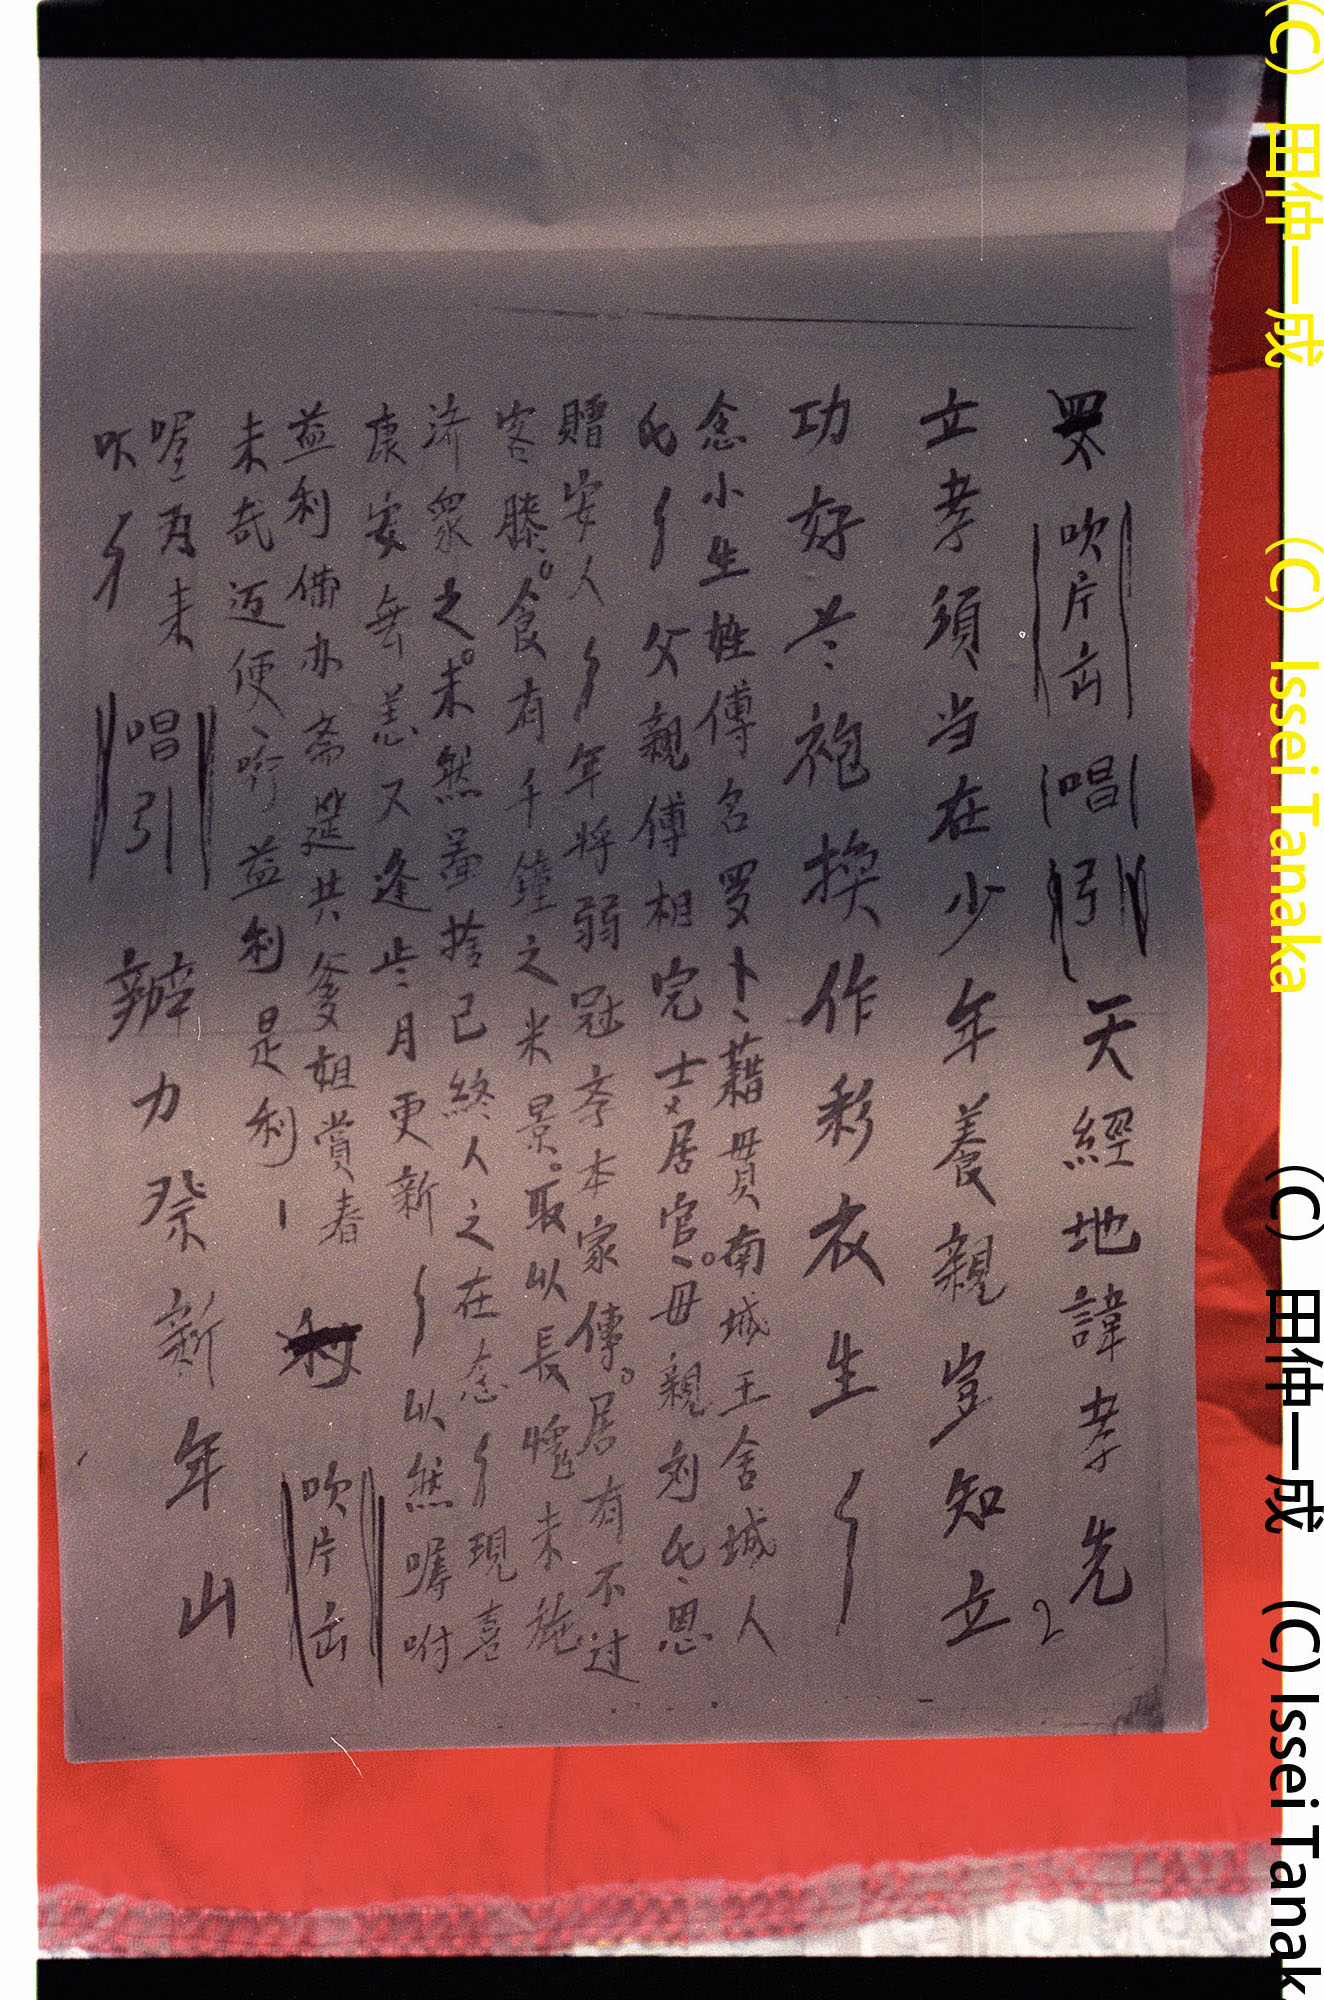 吹片缶 唱引 天經地諱孝先
立孝須当在少年養親岂知立
功好 袍換作彩衣生
念小生姓傅名罗卜藉貫南城王舍城人
氏 父親傅相完士居官母親刘氏恩
贈安人 年将弱冠 本家傳。居有不过
容膝。食有千鐘之米景。取以長愧未施
济衆之。未然虽捨己終人之在念 現喜
康安無恙又逢 月更新 以然嘱咐
益利備办斋筵共爹姐賞春 吹片缶
未奇迈便 益利是利
喔 为未
吹 唱引 辦力祭新年山
2
(C) 田仲一成 (C) Issei Tanaka (C) 田仲一成 (C) Issei Tanak